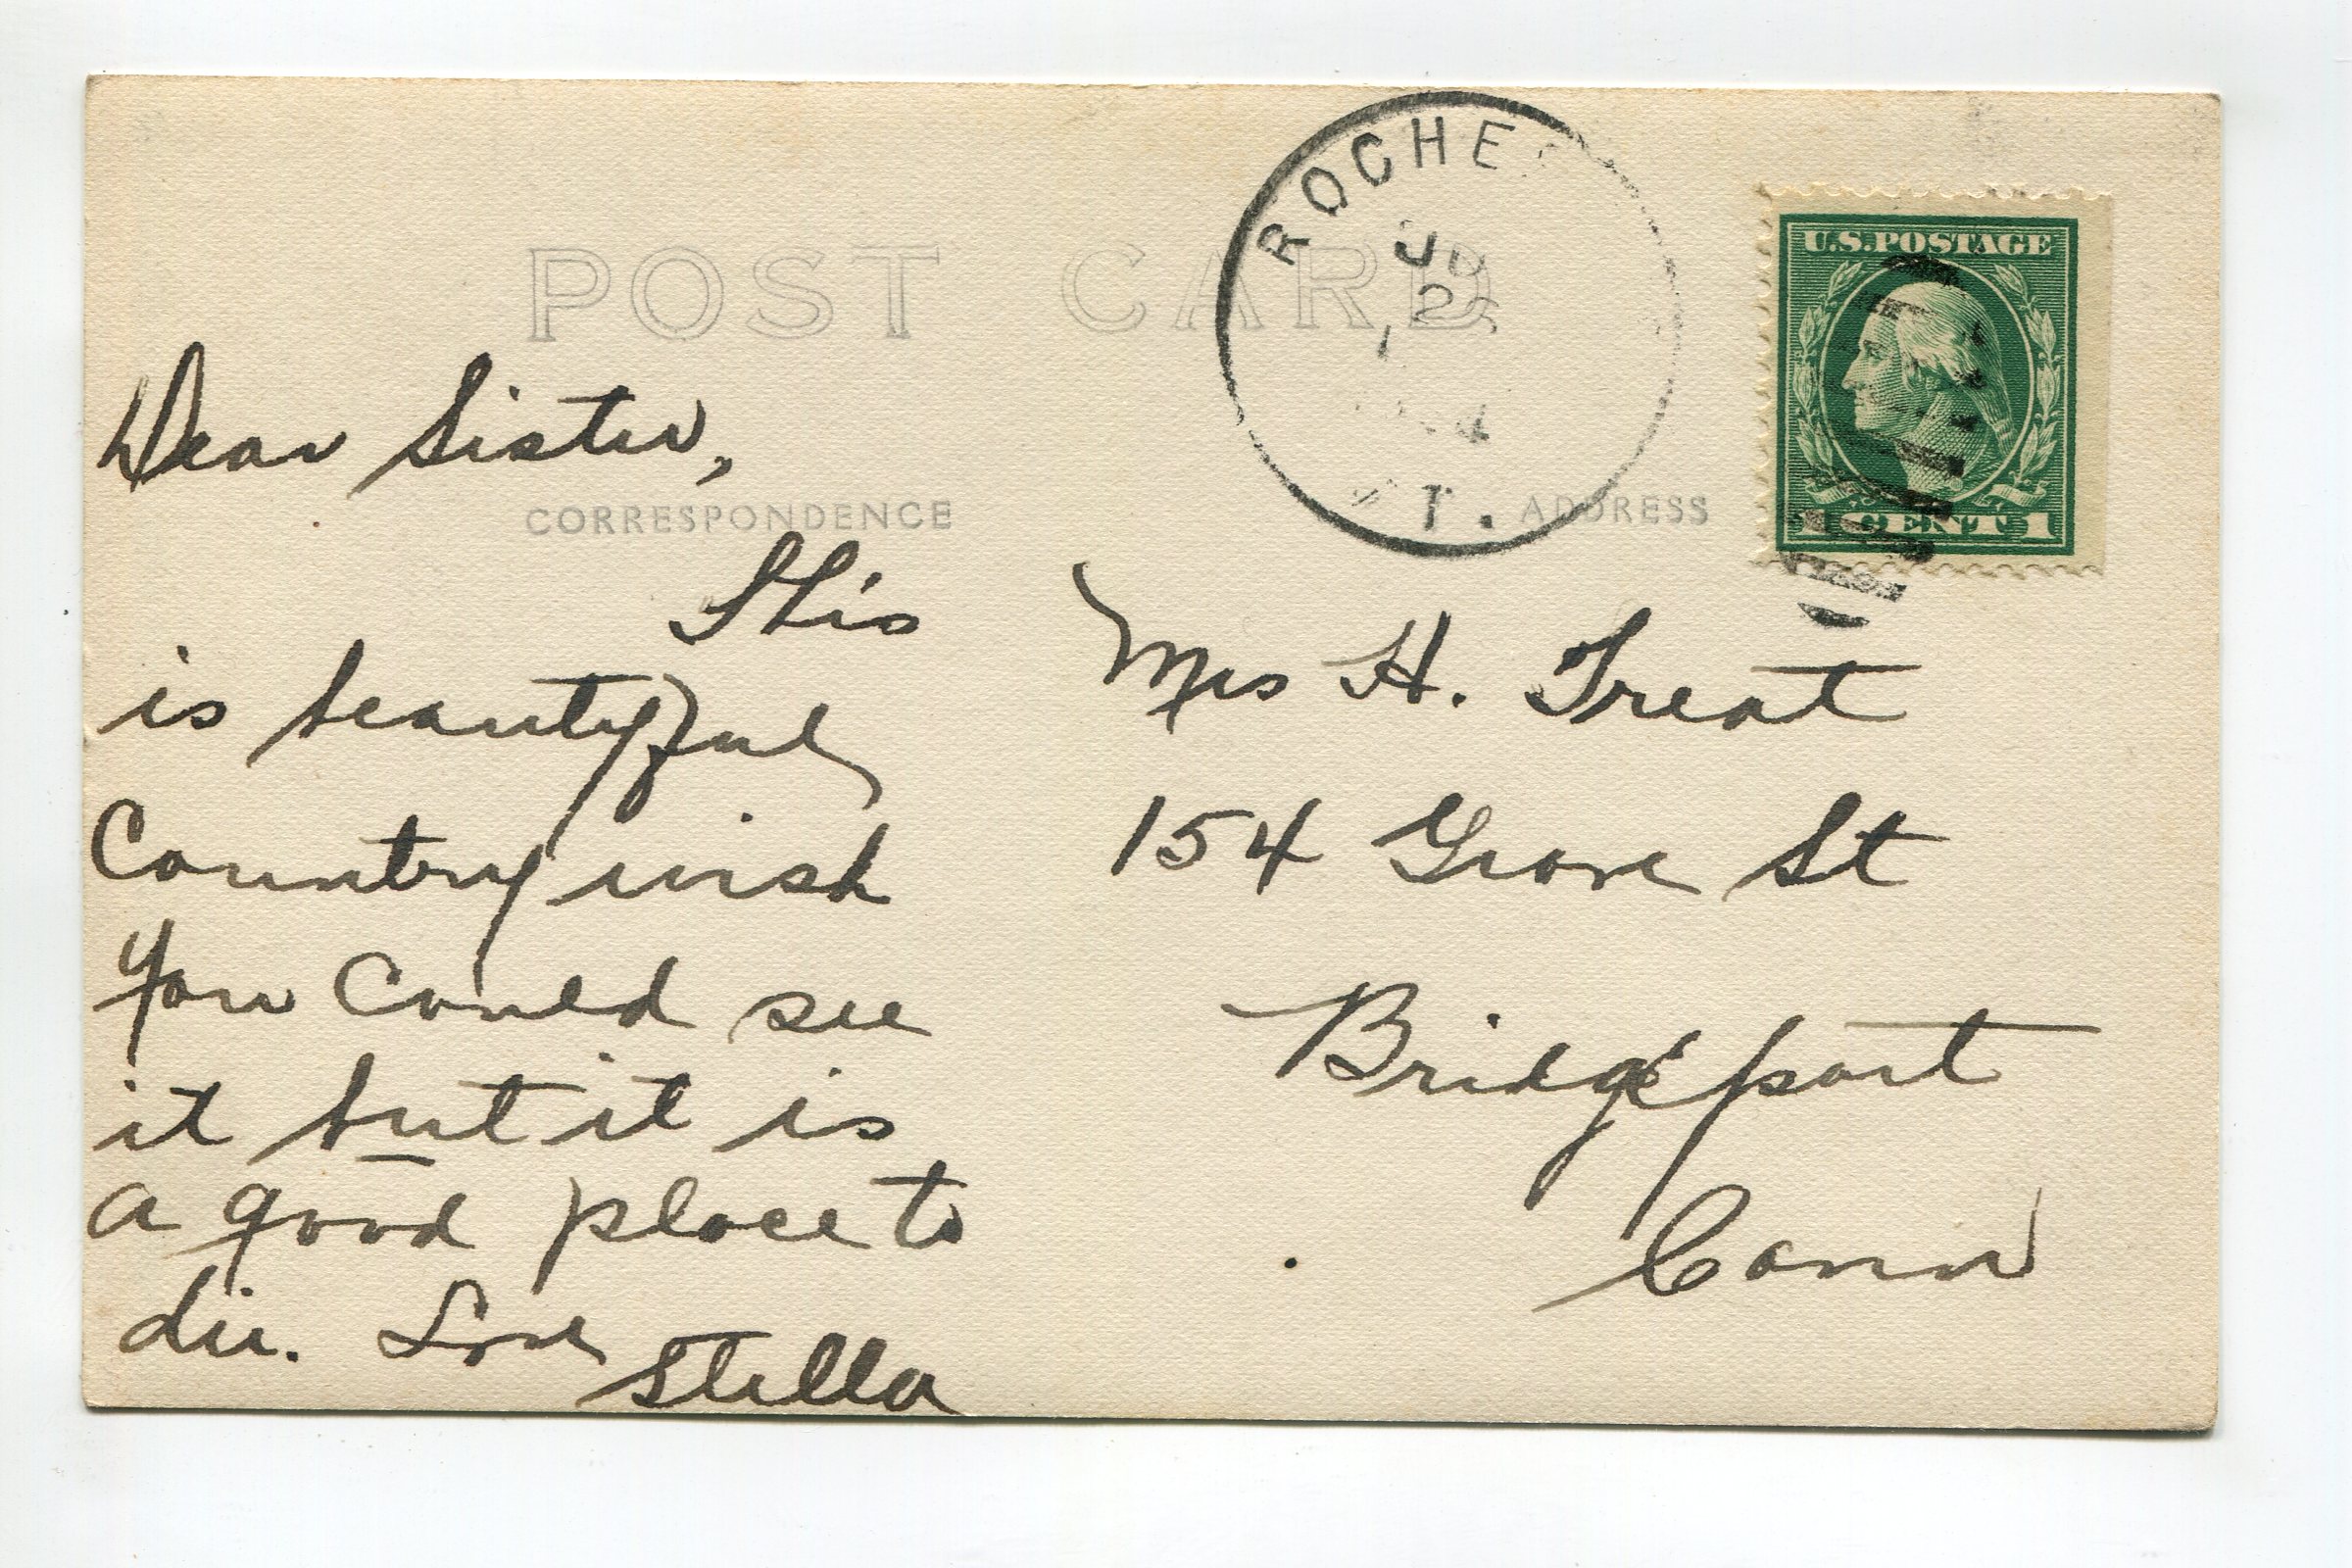 POST CARD
ROCHES
25
T.
U.S. POSTAGE
1 CENT 1
CORRESPONDENCE
ADDRESS
Dear Sister,
This
is beautyful
Country wish
You Could see
it but it is
a good place to
die. Love
Stella
Mrs H. Treat
154 Grove St
Bridgeport
Conn